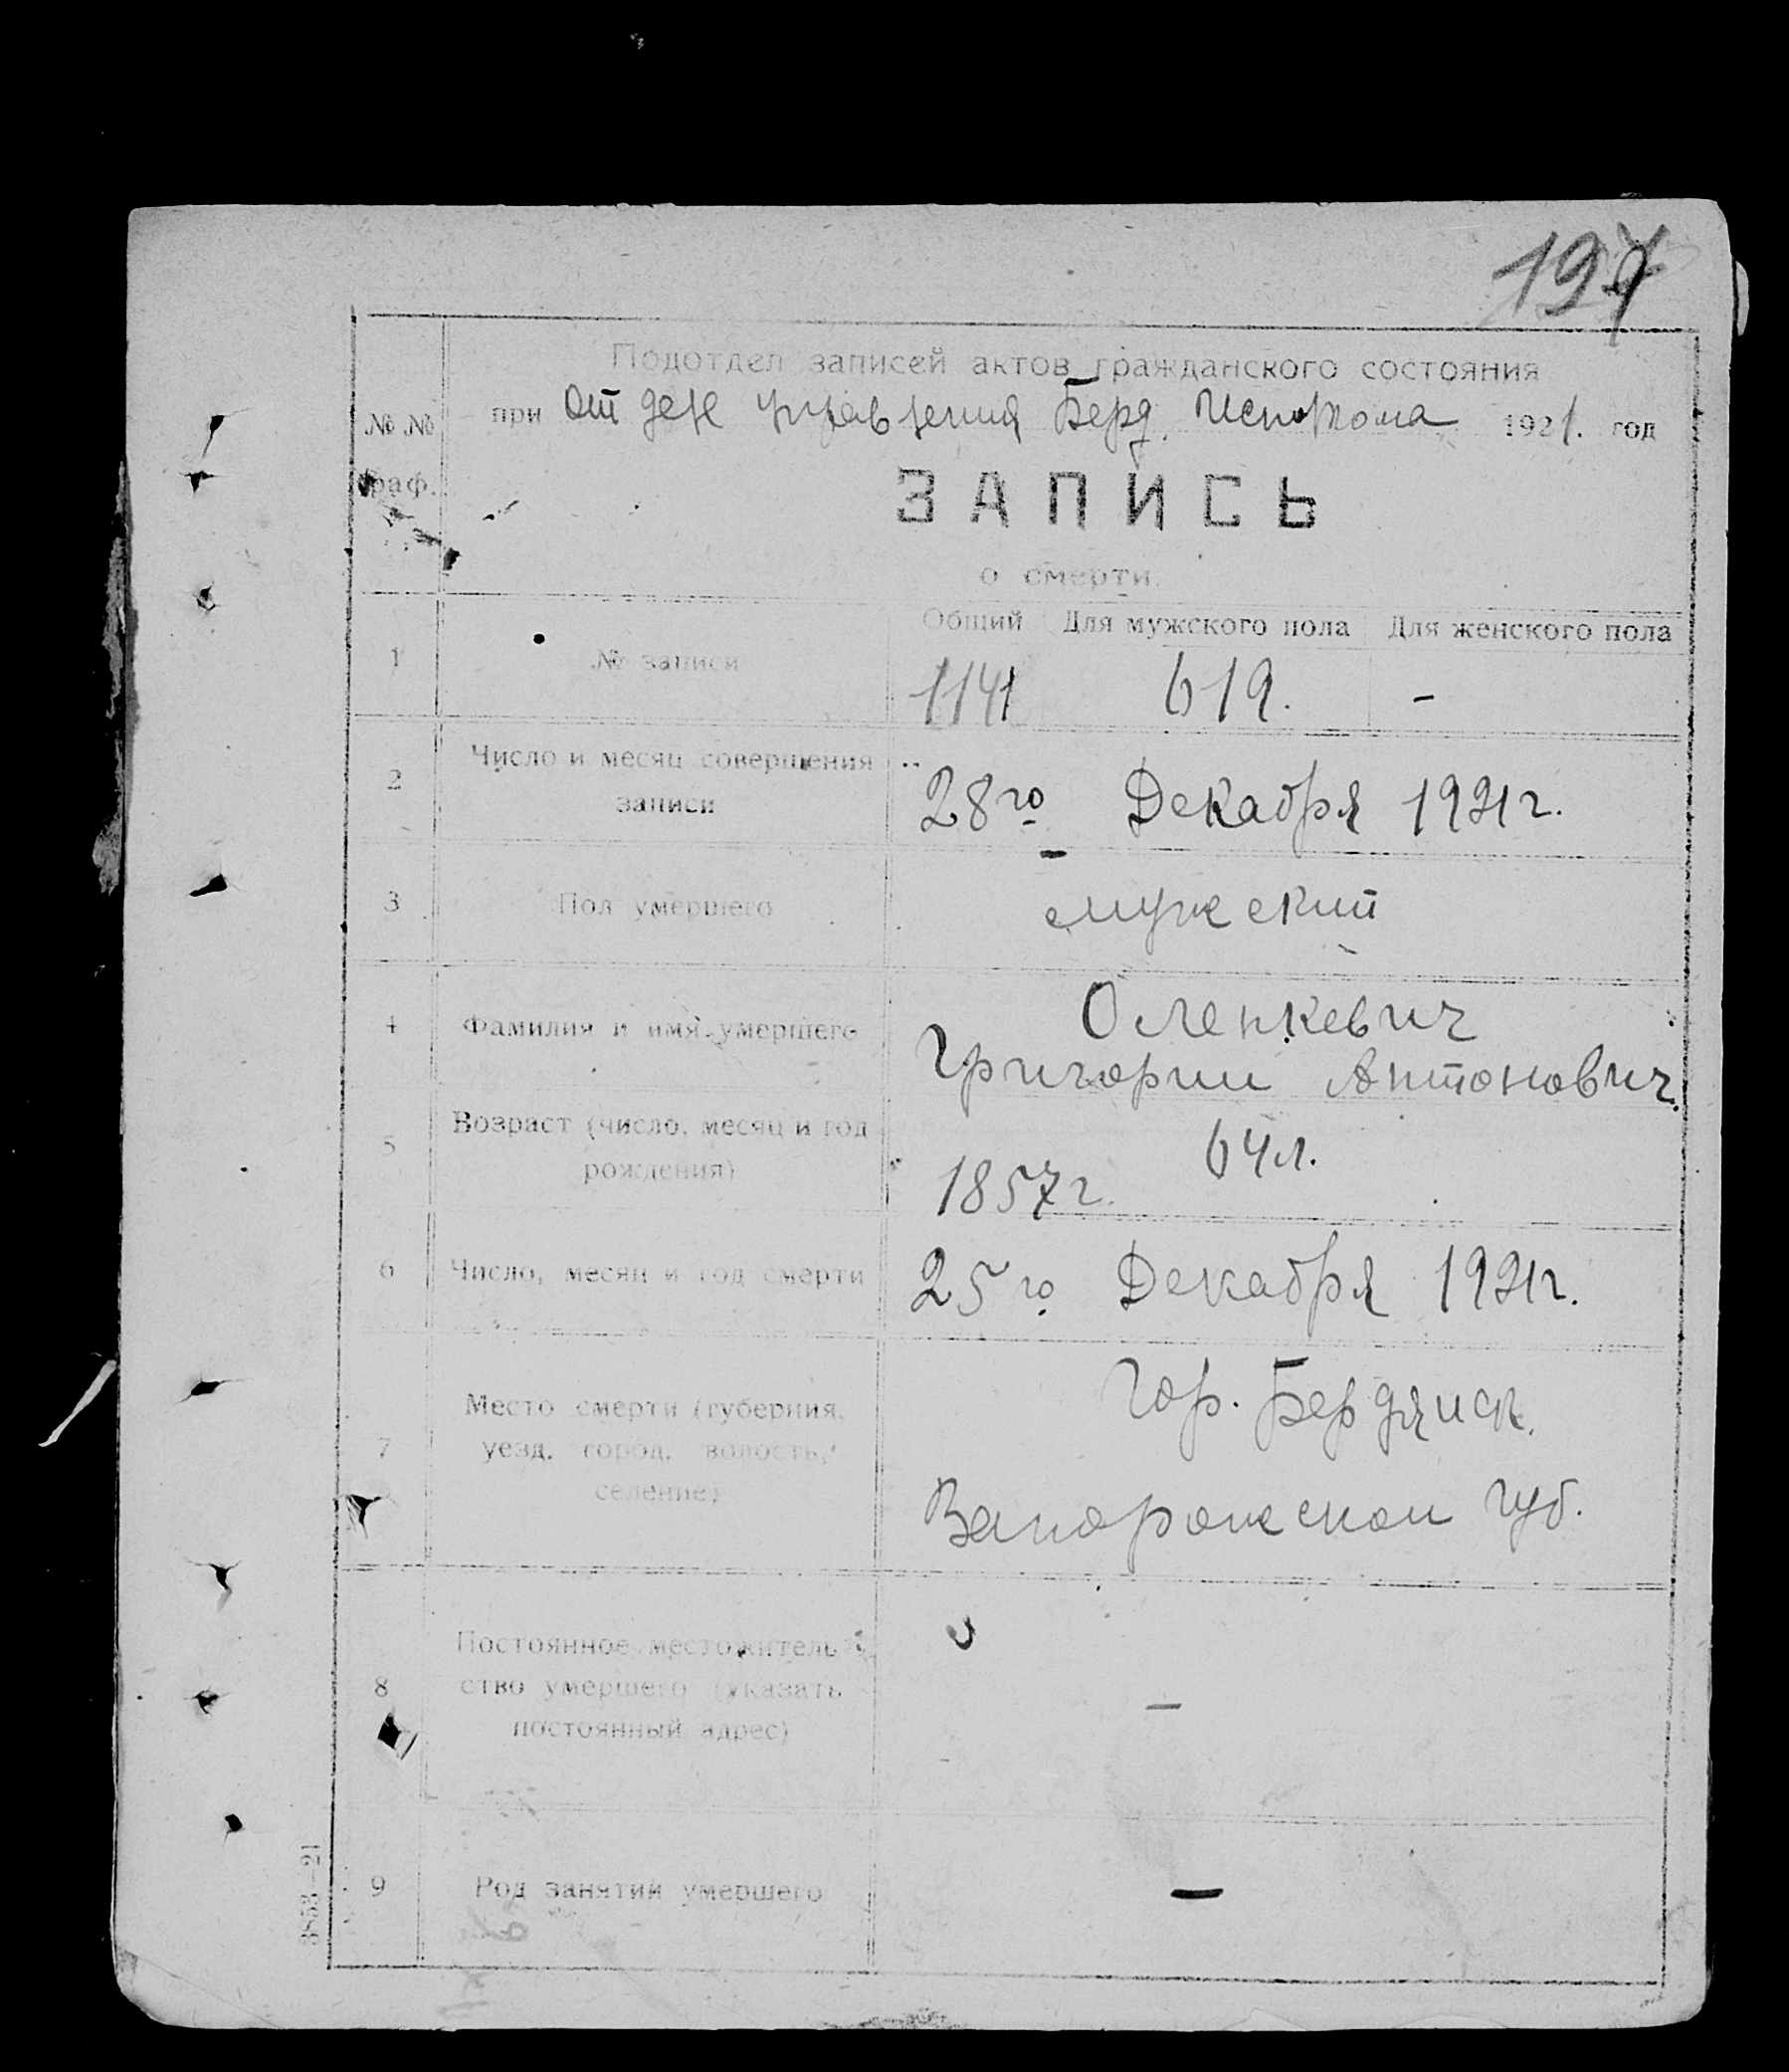 Подотдел записей актов гражданского состояния
при Отделе управления Берд. Исполкома 1921. год
№ №
граф.
ЗАПИСЬ
о смерти.
Общий Для мужского пола Для женского пола
1 № записи 1141 619. –
2 Число и месяц совершения
записи 28го Декабря 1921г.
3 Пол умершего мужский
4 Фамилия и имя умершего Оленкевич
Григории Антонович.
5 Возраст (число, месяц и год
рождения) 1857г. 64л.
6 Число, месяц и год смерти 25го Декабря 1921г.
7 Место смерти (губерния,
уезд, город, волость,
селение) Гор. Бердянск.
Запорожскои губ.
8 Постоянное местожитель-
ство умершего (указать
постоянный адрес) –
9 Род занятий умершего –
3853–21